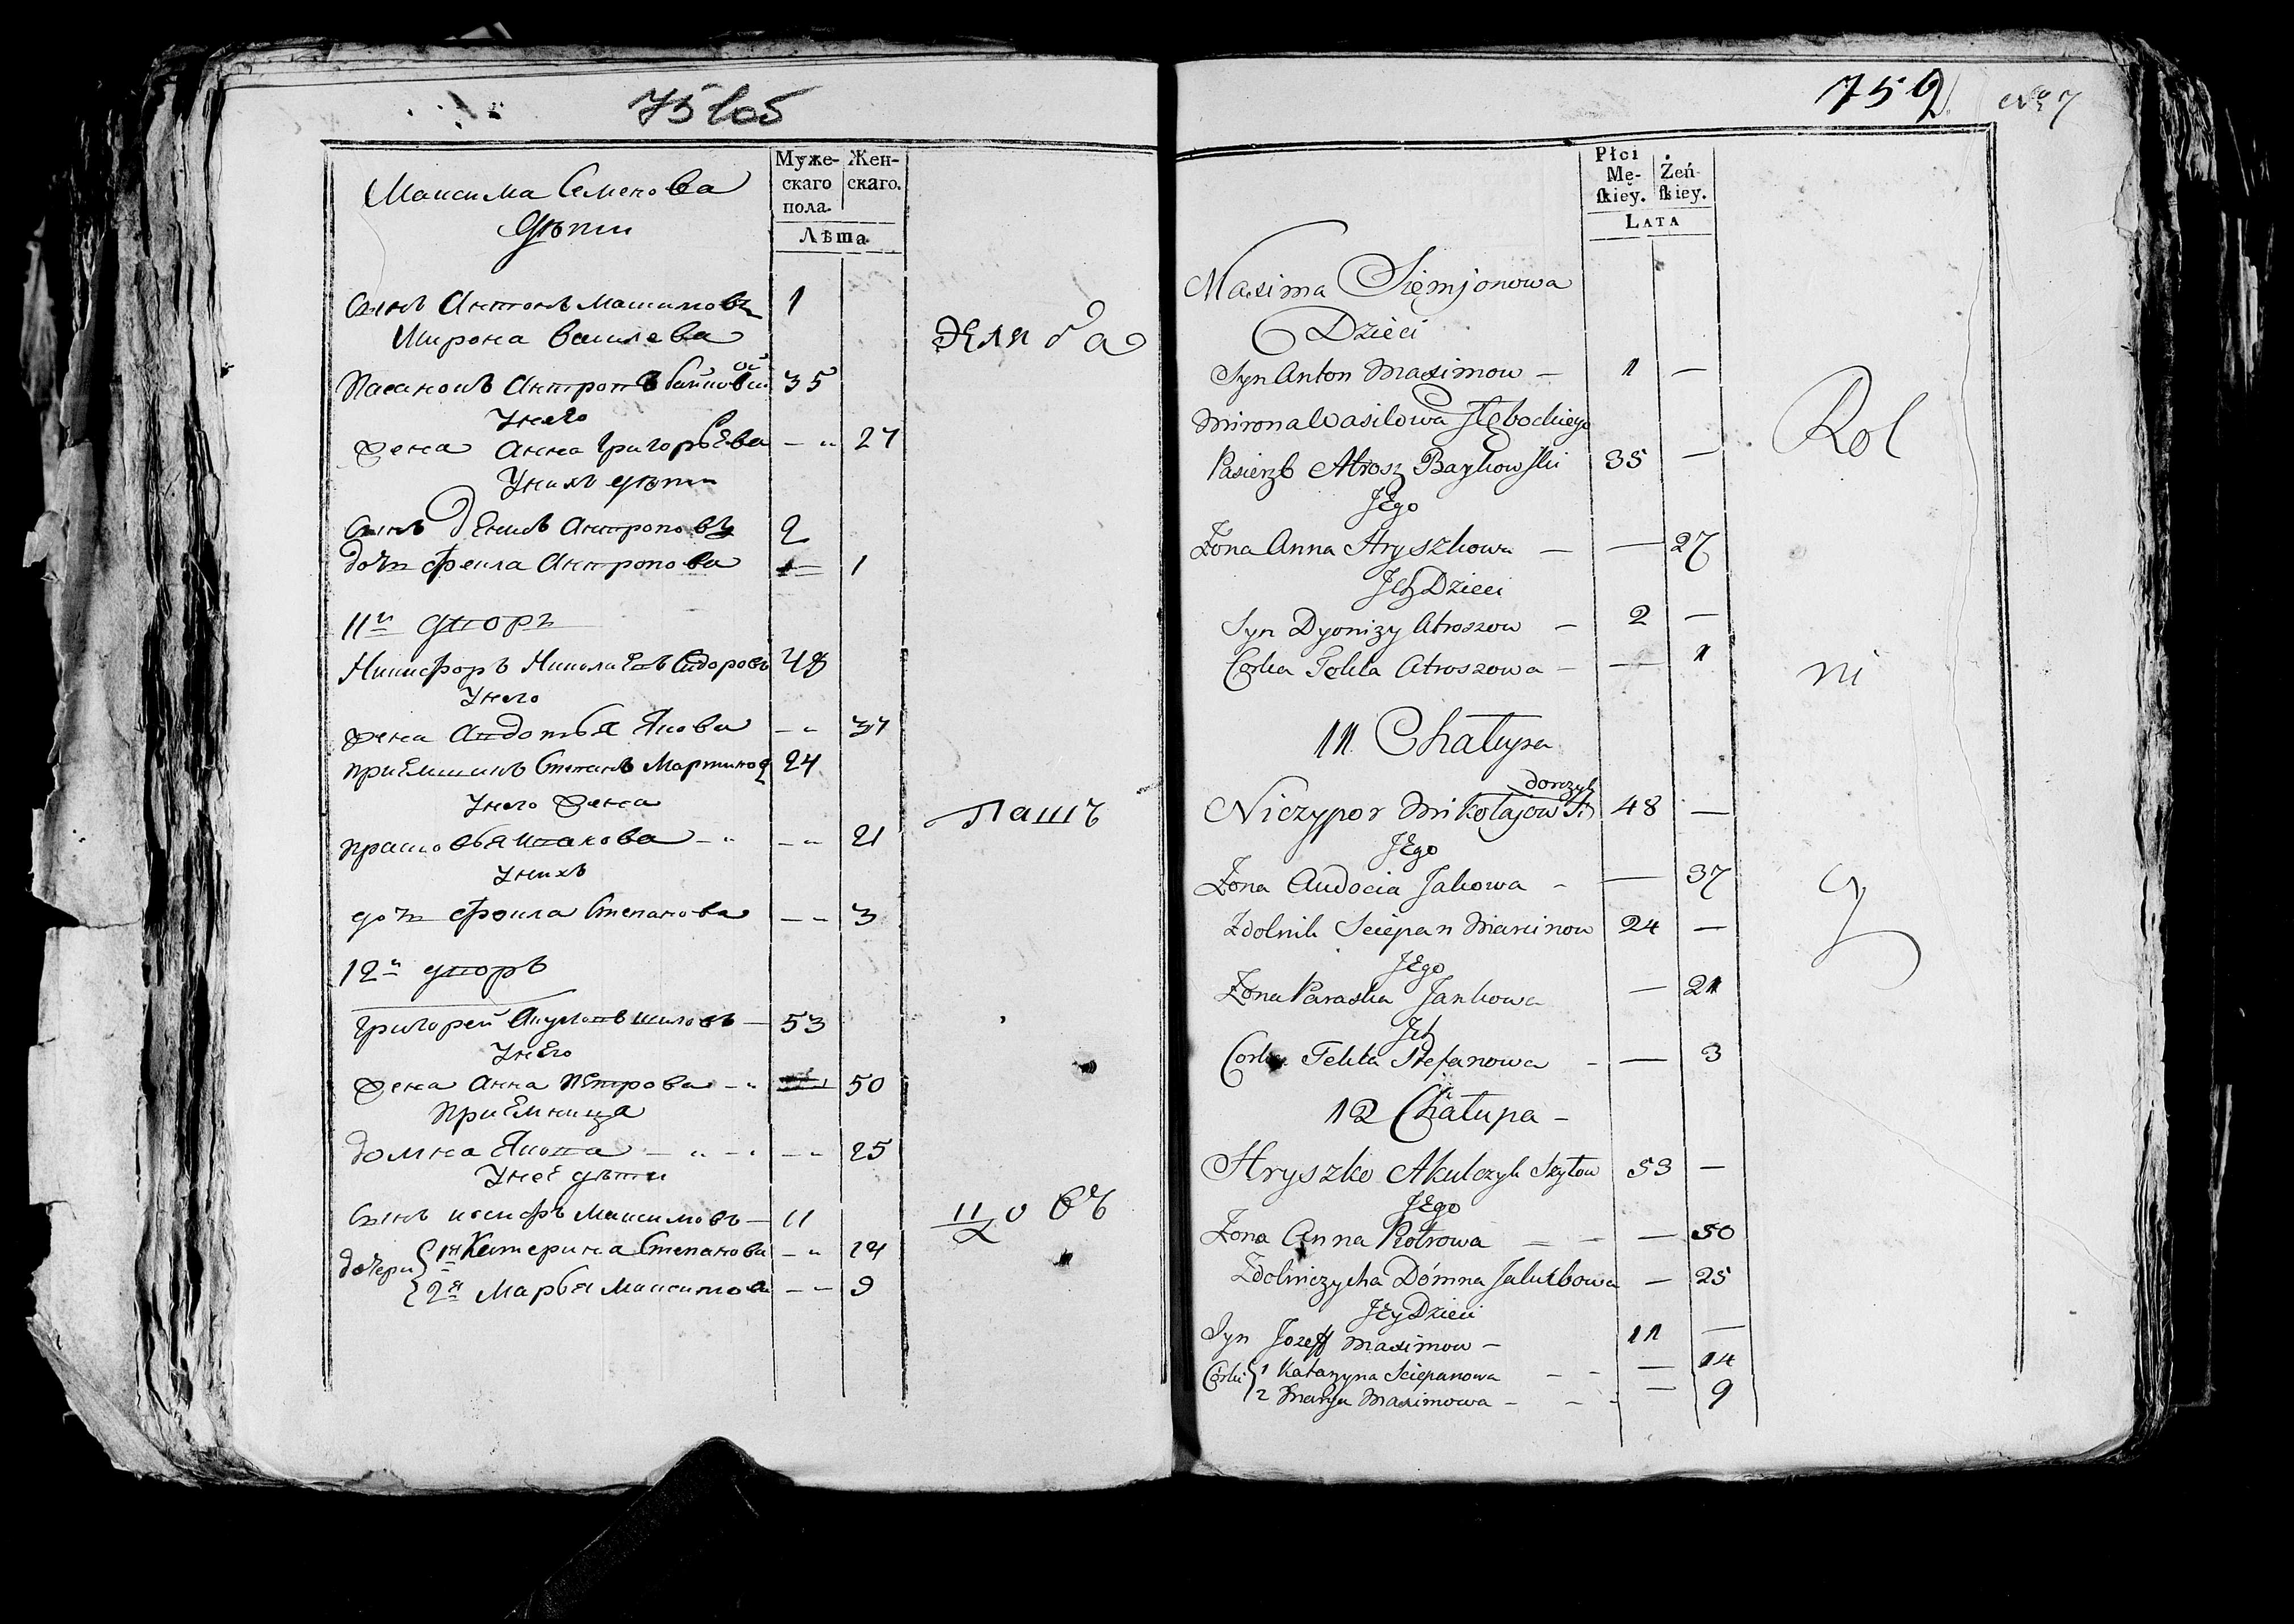 Муже-
скаго
пола.
Жен-
скаго.
Лѣта
Максима Семенова
Дѣти
Сынъ Антонъ Максимовъ 1
Мирона Василева
Пасанокъ Антропъ 35
У него
жена Анна Григорьева - " 27
У нихъ дѣти
Сынъ Денисъ Антроповъ 2
дочь Фекла Антропова 1
11й дворъ
Никифоръ Николаевъ Сидоровъ 48
У него
жена Авдотья Якова - " 37
приемышъ Степанъ Мартинов 24
У него жена
Прасковья - " 21
У нихъ
дочь Фекла Степанова - - 3
12й дворъ
Григорей Акуловъ Шиловъ 53
У него
жена Анна Петрова - " 50
Приемница
Домна Якова - " 25
У нее дѣти
Сынъ иосифъ Максимовъ 11
дочери 1я Катерина Степанова - " 14
2я Марья Максимова - - 9
Паш
759 № 7
Płci
Mę-
skiey.
Żeń-
skiey.
LATA
Maxima Siemjonowa
Dzieci
Syn Anton Maximow - 1 -
Mirona Wasilowa Głębockiego
Pasierzb Atrosz Baykowski 35 -
JEgo
Żona Anna Hryszkowa - - 27
Jch Dzieci
Syn Dyonizy Atroszow - 2 -
Corka Tekla Atroszowa - - 1
11 Chałupa
Niczypor Mikołajow Si
dorczyk 48 -
JEgo
Żona Audocia Jakowa - - 37
Zdolnik Sciepan Marcinow 24 -
JEgo
Żona Paraska Jankowa - 21
Jch
Corka Tekla Stefanowa - - 3
12 Chałupa -
Hryszko Akulczyk Szyłow 53 -
JEgo
Żona Anna Piotrowa - - - 50
Zdolniczycha Dómna Jakubowa - 25
JEy Dzieci
Syn Jozeff Maximow - 11 -
Corki 1 Katarzyna Sciepanowa - - - 14
2 Marya Maximowa - - - 9
Rol
ni
cy